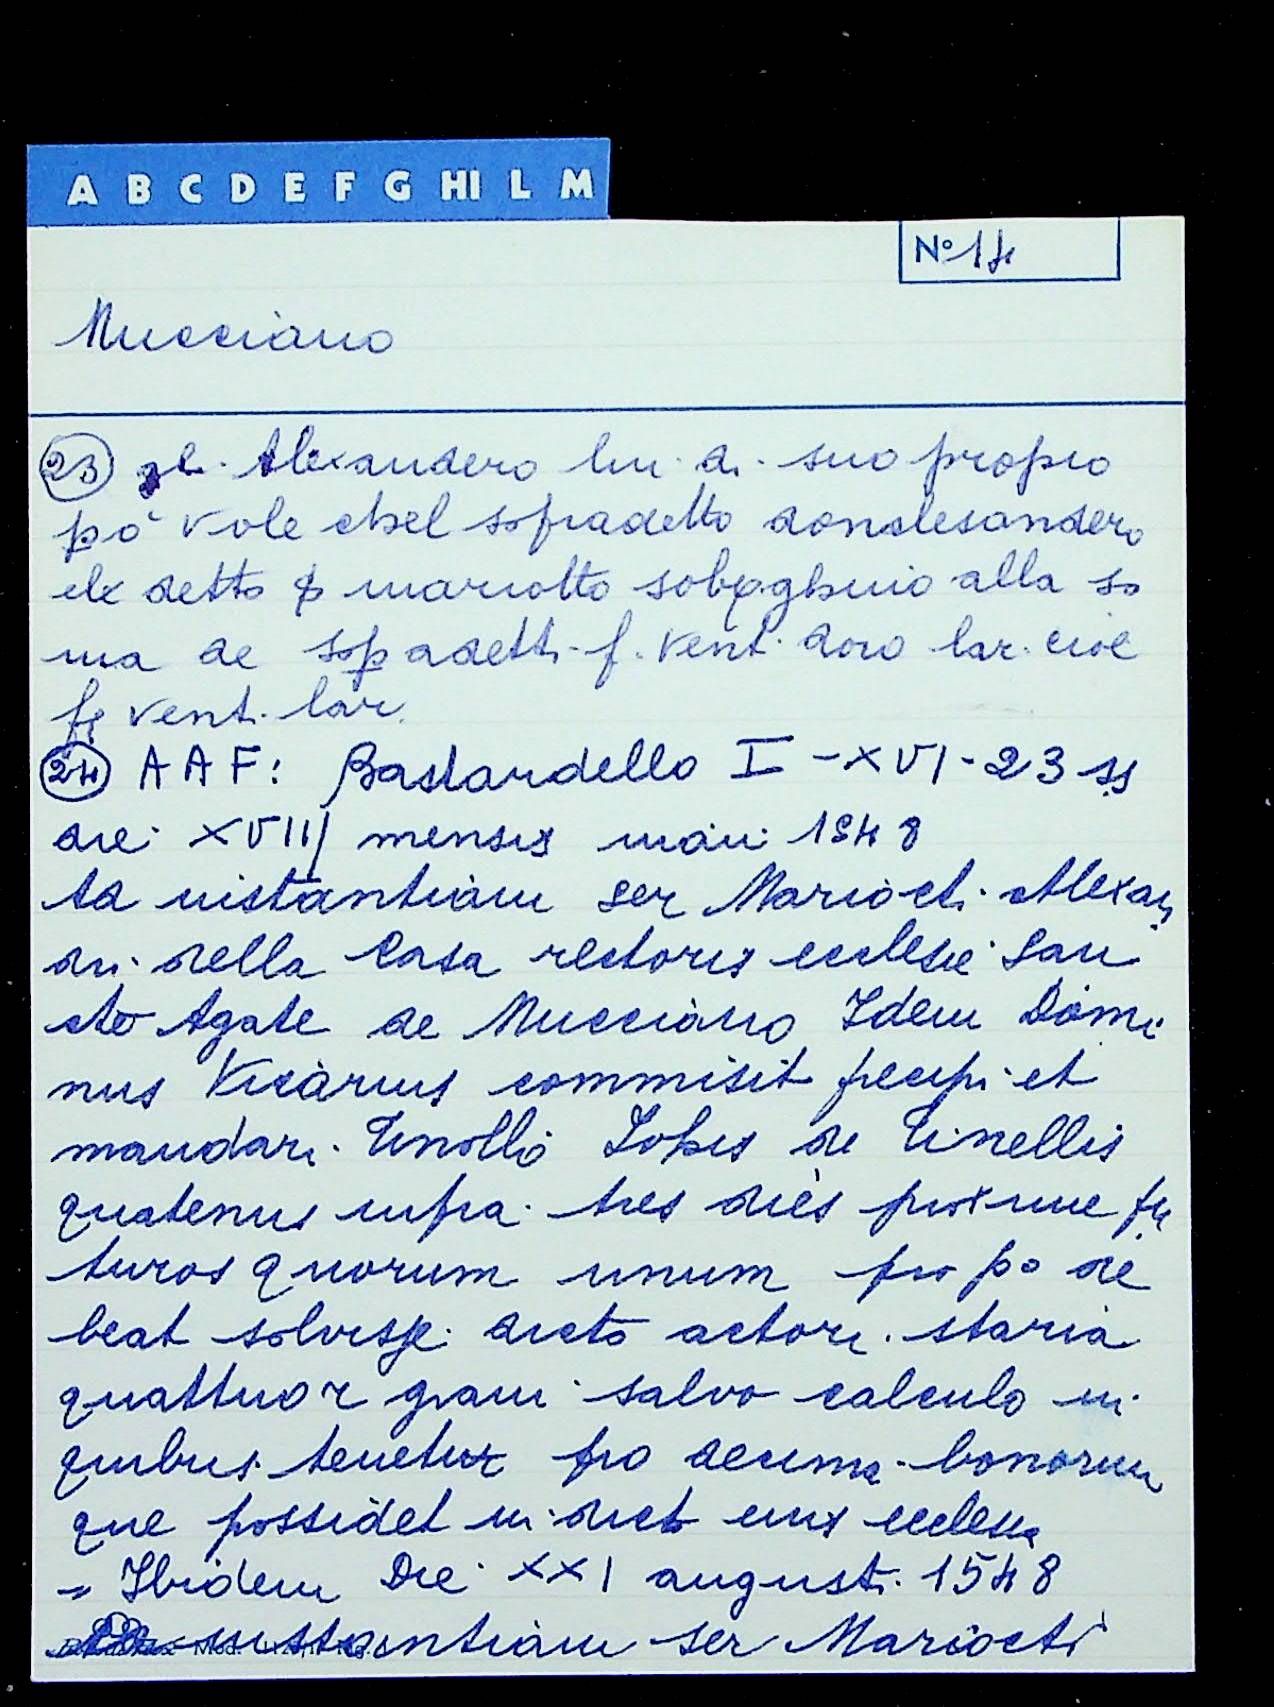 A B C D E F G HI L M
Nº 14
Mucciano
23 gl. Alexandero lui di suo propio
po vole chel sopradetto donalesandero
el detto p mariotto sobrghuio alla so
ma de sopadetti f. venti doro lar. cioe
fi venti lar.
24 A A F: Bastardello I - XVI - 23 ss
die XVIII mensis maii 1548
Ad instantiam ser Mariocti Alexan
dri della Casa rectoris ecclesie San
cte Agate de Mucciano Idem Domi
nus Vicarius commisit precipi et
mandari Tinello Johis de Tinellis
quatenus infra tres dies proxime fu
turos quorum unum pro po de
beat solvisse dicto actori staria
quattuor grani salvo calculo in
quibus tenetur pro decima bonorum
que possidet in dict eius ecclesia
= Ibidem Die XXI augusti 1548
Ad instantiam ser Mariocti